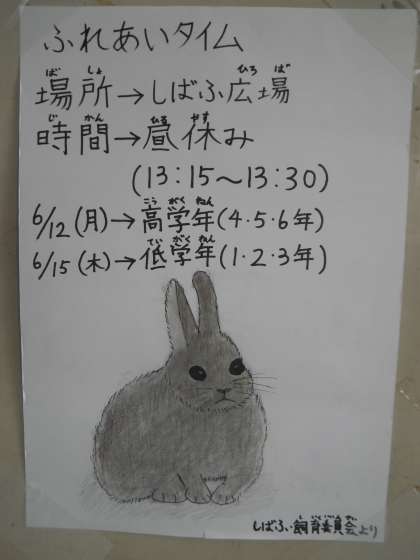 ふれあいタイム
場所→しばふ広場
時間→昼休み
(13:15～13:30)
6/12(月)→高学年(4・5・6年)
6/15(木)→低学年(1・2・3年)
しばふ飼育委員会より